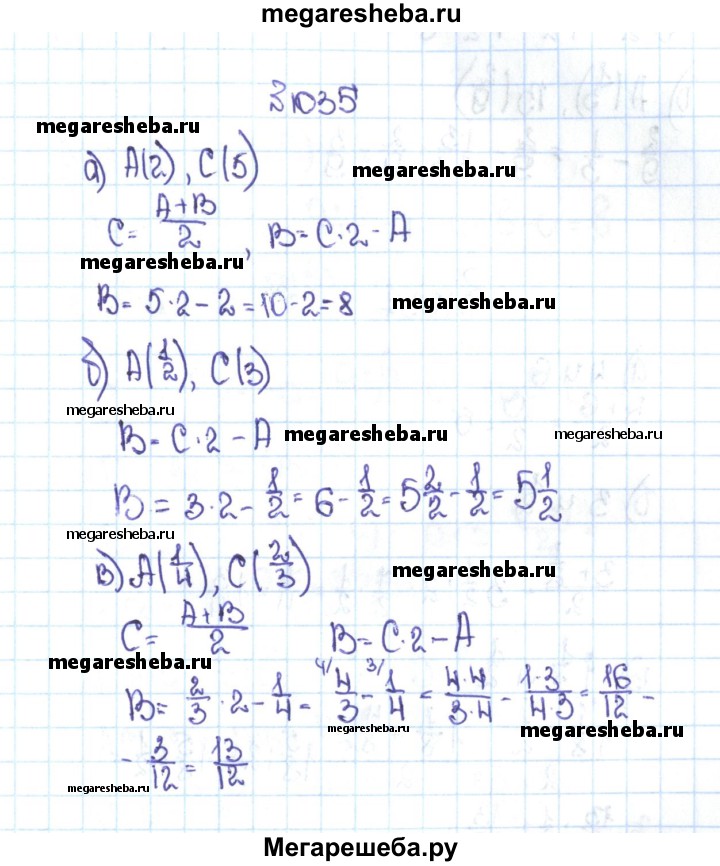 megaresheba.ru
№1035
megaresheba.ru
а) A(2), C(5)
megaresheba.ru
C = (A+B)/2, B = C·2 - A
megaresheba.ru
B = 5·2 - 2 = 10 - 2 = 8
megaresheba.ru
б) A(1/2), C(3)
megaresheba.ru
B = C·2 - A
megaresheba.ru
megaresheba.ru
B = 3·2 - 1/2 = 6 - 1/2 = 5 2/2 - 1/2 = 5 1/2
megaresheba.ru
в) A(1/4), C(2/3)
megaresheba.ru
C = (A+B)/2 B = C·2 - A
megaresheba.ru
B = 2/3 · 2 - 1/4 = ⁴⁄ 4/3 - ³⁄ 1/4 = 4·4/3·4 - 1·3/4·3 = 16/12 -
megaresheba.ru
megaresheba.ru
- 3/12 = 13/12
megaresheba.ru
Мегарешеба.ру